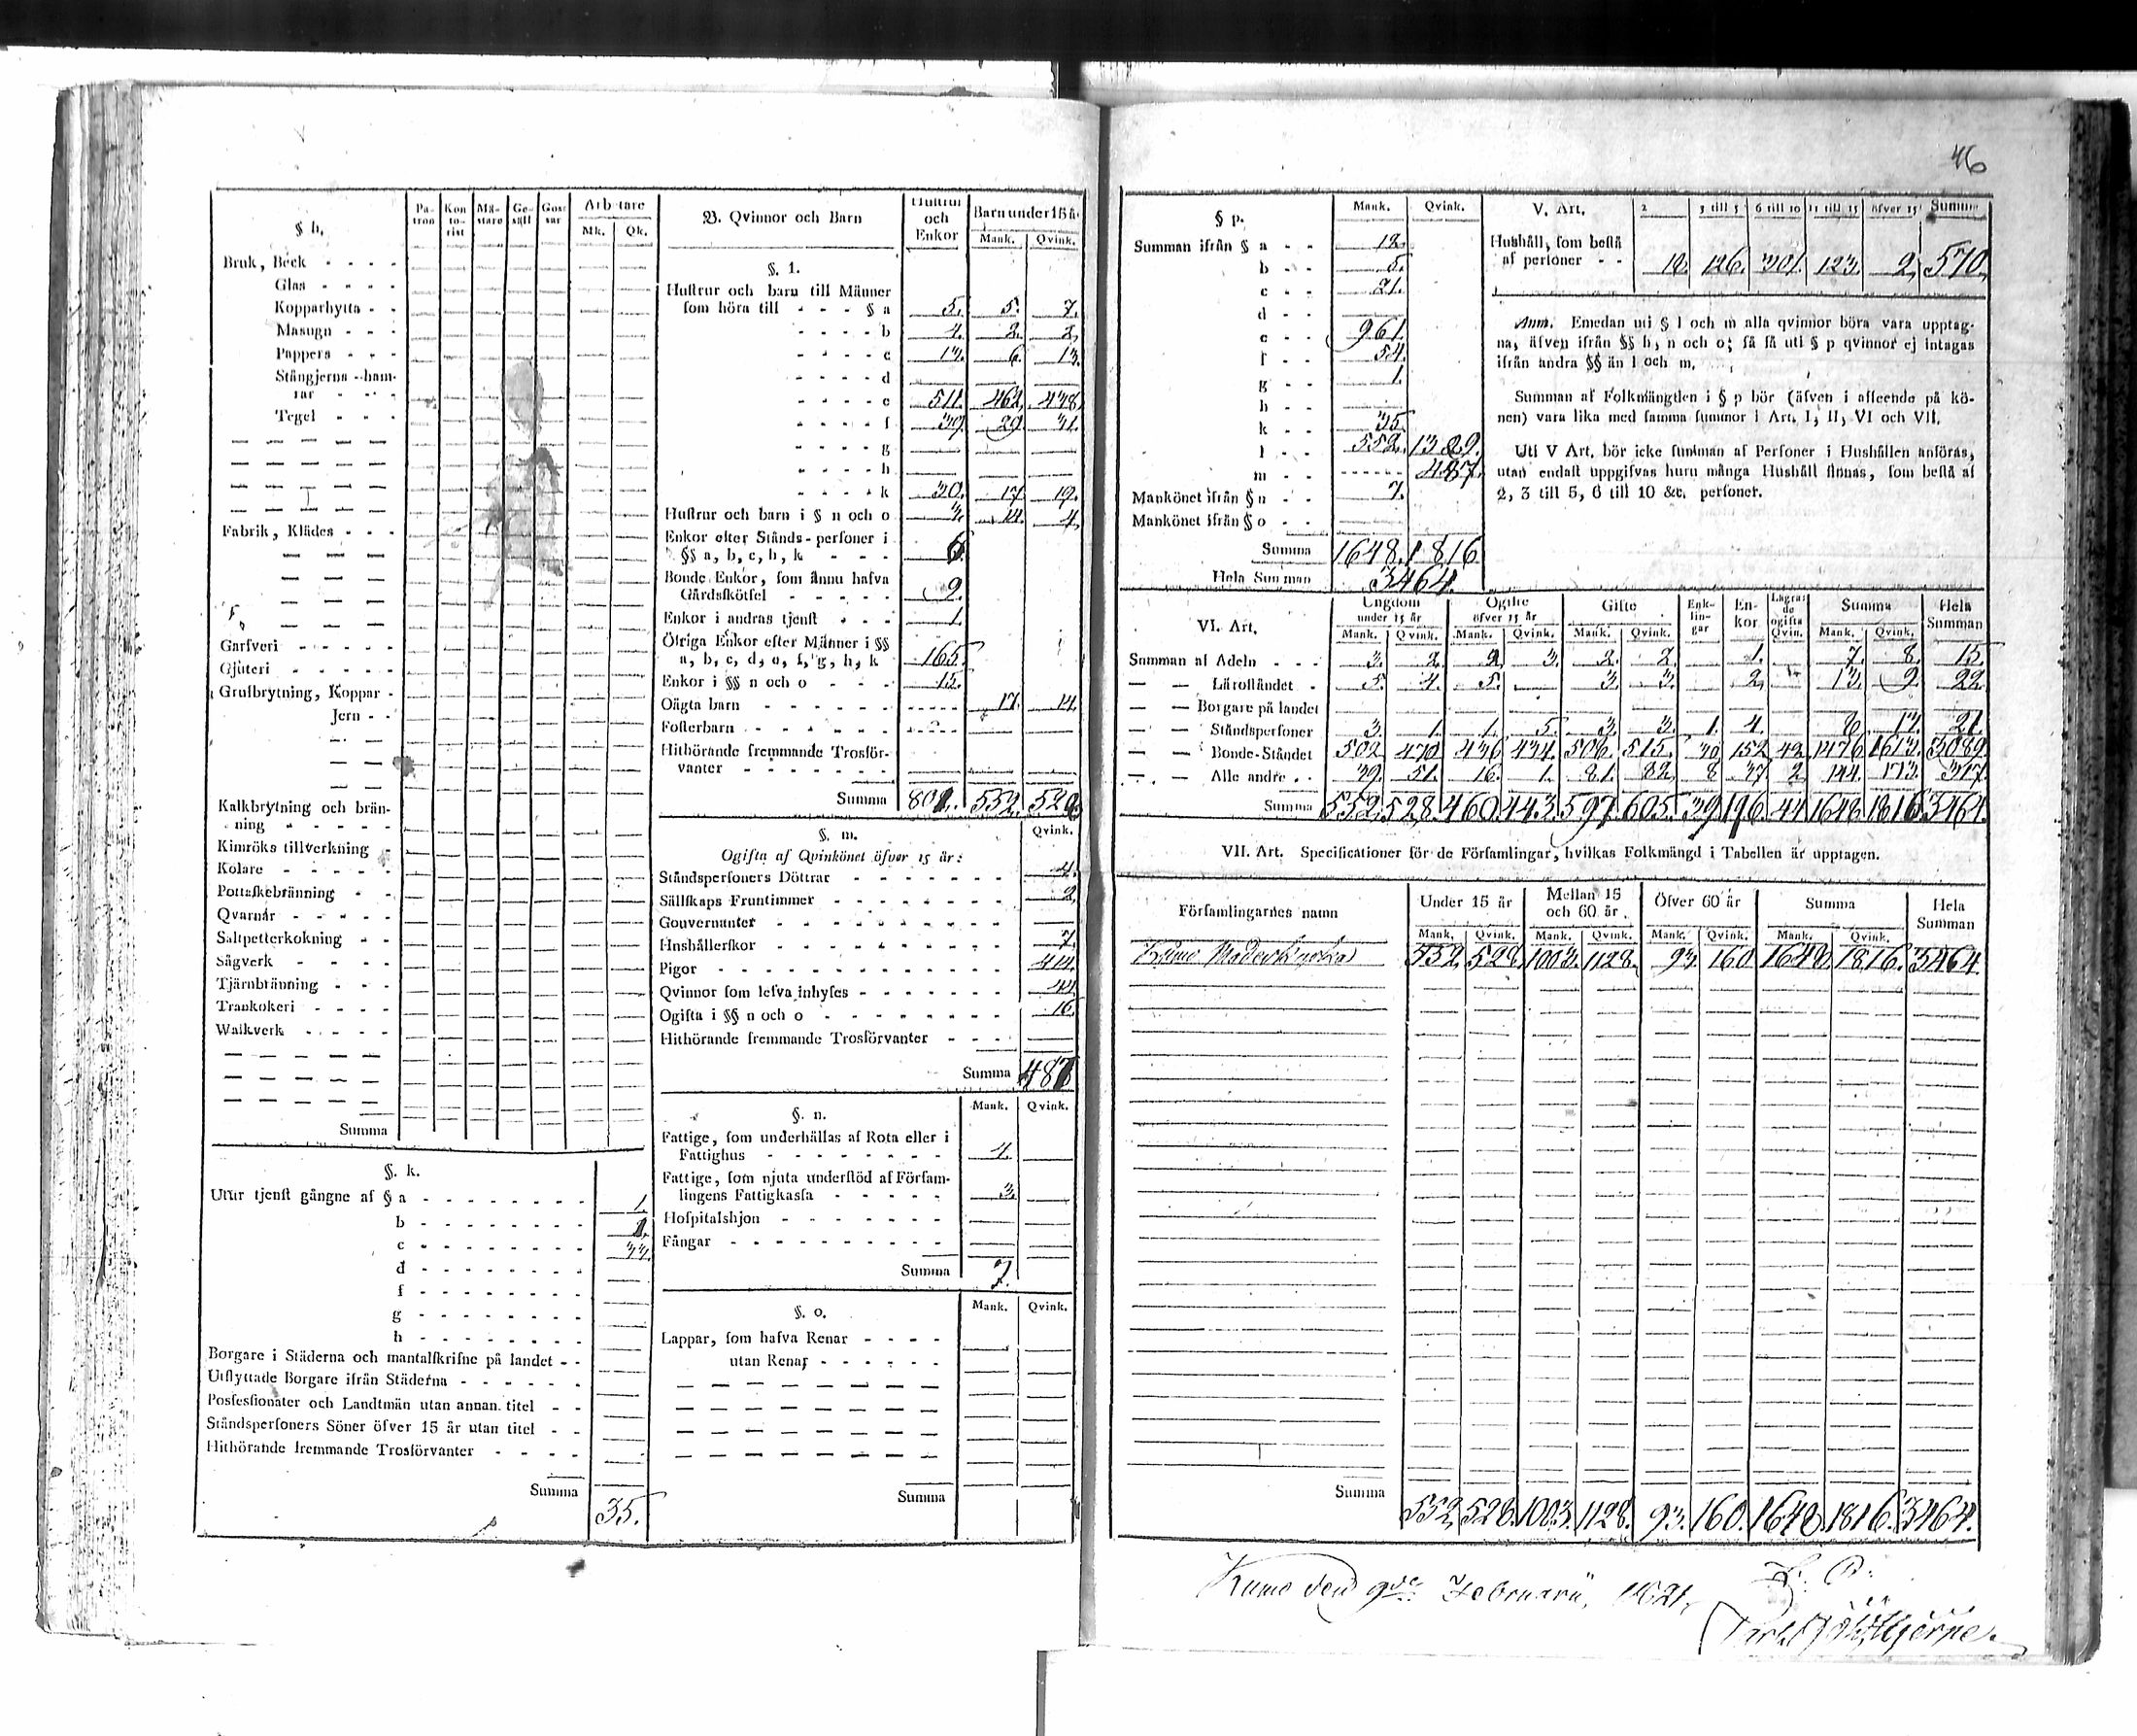 46
§ h.
Pa-tron Kon-to-rist Mä-stare Ge-säll Gos-sar Arbetare
Mk. Qk.
Bruk, Beck - - - -
Glas - - - -
Kopparhytta - -
Masugn - - -
Pappers - - -
Stångjerns-ham-
rar - - -
Tegel - - -
Fabrik, Klädes - - -
Garfveri - - - - -
Gjuteri - - - - -
Grufbrytning, Koppar -
Jern - -
Kalkbrytning och brän-
ning - - - - -
Kimröks tillverkning -
Kolare - - - - -
Pottaskebränning - -
Qvarnar - - - - -
Saltpetterkokning - -
Sågverk - - - -
Tjärubränning - - -
Trankokeri - - - -
Walkverk - - - -
Summa
§. k.
Utur tjenst gångne af § a - - - - - - - - 1.
b - - - - - - - - 1.
c - - - - - - - - 33.
d - - - - - - - -
f - - - - - - - -
g - - - - - - - -
h - - - - - - - -
Borgare i Städerna och mantalskrifne på landet - -
Utflyttade Borgare ifrån Städerna - - - - - -
Possessionater och Landtmän utan annan titel - -
Ståndspersoners Söner öfver 15 år utan titel - -
Hithörande fremmande Trosförvanter - - - -
Summa 35.
B. Qvinnor och Barn
Hustrur och Enkor Barn under 15 år
Mank. Qvink.
§. 1.
Hustrur och barn till Männer
som höra till - - - § a 5. 5. 7.
- - - - b 4. 2. 2.
- - - - c 13. 6. 13.
- - - - d
- - - - e 511. 462. 438.
- - - - f 39. 29. 31.
- - - - g
- - - - h
- - - - k 30. 17. 19.
Hustrur och barn i § n och o 3. 14. 4.
Enkor efter Stånds-personer i
§§ a, b, c, h, k - - - 6.
Bonde Enkor, som ännu hafva
Gårdsskötsel - - - - - 9.
Enkor i andras tjenst - - - 1.
Öfriga Enkor efter Männer i §§
a, b, c, d, e, f, g, h, k 165.
Enkor i §§ n och o - - - 15.
Oägta barn - - - - - - 17. 14.
Fosterbarn - - - - - -
Hithörande fremmande Trosför-
vanter - - - - - - -
Summa 801. 552. 528.
§. m. Qvink.
Ogifta af Qvinkönet öfver 15 år:
Ståndspersoners Döttrar - - - - - - - 4.
Sällskaps Fruntimmer - - - - - - - 2.
Gouvernanter - - - - - - - - -
Hushållerskor - - - - - - - - - 7.
Pigor - - - - - - - - - - - - 414.
Qvinnor som lefva inhyses - - - - - - - 44.
Ogifta i §§ n och o - - - - - - - - 16.
Hithörande fremmande Trosförvanter - - -
Summa 487
§. n. Mank. Qvink.
Fattige, som underhållas af Rota eller i
Fattighus - - - - - - - - 4.
Fattige, som njuta understöd af Försam-
lingens Fattigkassa - - - - - 3.
Hospitalshjon - - - - - - -
Fångar - - - - - - - - - -
Summa 7.
§. o. Mank. Qvink.
Lappar, som hafva Renar - - - -
utan Renar - - - - - -
Summa
§ p. Mank. Qvink.
Summan ifrån § a - - 12.
b - - 5.
c - - 21.
d - -
e - - 961.
f - - 54.
g - - 1.
h - -
k - - 35.
l - - 552. 1329.
m - - 487.
Mankönet ifrån § n - - 7.
Mankönet ifrån § o - -
Summa 1648. 1816
Hela Summan 3464.
V. Art. 2 3 till 5 6 till 10 11 till 15 öfver 15 Summa
Hushåll, som bestå
af personer - - 18. 126. 301. 123. 2. 570.
Anm. Emedan uti § l och m alla qvinnor böra vara upptag-
na, äfven ifrån §§ h, n och o; så få uti § p qvinnor ej intagas
ifrån andra §§ än l och m.
Summan af Folkmängden i § p bör (äfven i afseende på kö-
nen) vara lika med samma summor i Art. I, II, VI och VII.
Uti V Art. bör icke summan af Personer i Hushållen anföras,
utan endast uppgifvas huru många Hushåll finnas, som bestå af
2, 3 till 5, 6 till 10 &c. personer.
VI. Art. Ungdom under 15 år Ogifte öfver 15 år Gifte Enk-lin-gar En-kor Lägrade ogifta Qvin. Summa Hela Summan
Mank. Qvink. Mank. Qvink. Mank. Qvink. Mank. Qvink.
Summan af Adeln - - - 3. 2. 2. 3. 2. 2. 1. 7. 8. 15.
— — Läroståndet - 5. 4. 5. 3. 3. 2. 13. 9. 22.
— — Borgare på landet
— — Ståndspersoner 3. 1. 1. 5. 3. 3. 1. 4. 8. 13. 21.
— — Bonde-Ståndet 502. 470. 436. 434. 508. 515. 30. 152. 42. 1476. 1613. 3089.
— — Alle andre - - 39. 51. 16. 1. 81. 82. 8 37. 2. 144. 173. 317.
Summa 552. 528. 460. 443. 597. 605. 39. 196. 44. 1648. 1816. 3464.
VII. Art. Specificationer för de Församlingar, hvilkas Folkmängd i Tabellen är upptagen.
Församlingarnes namn Under 15 år Mellan 15 och 60 år. Öfver 60 år Summa Hela Summan
Mank. Qvink. Mank. Qvink. Mank. Qvink. Mank. Qvink.
Kumo Moderkyrka 552. 528. 1003. 1128. 93. 160. 1648. 1816. 3464
Summa 552. 528. 1003. 1128. 93. 160. 1648. 1816. 3464.
Kumo den 9de Februarii, 1821.